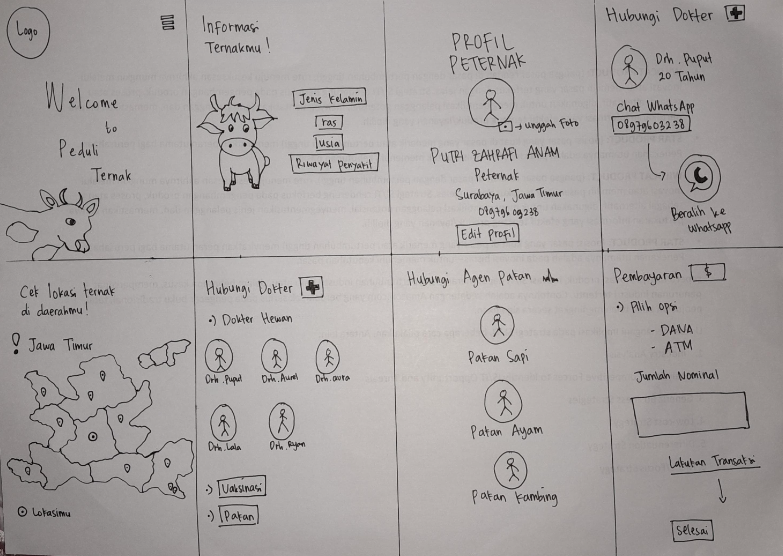 Logo
Welcome
to
Peduli
Ternak
Informasi
Ternakmu!
Jenis Kelamin
ras
usia
Riwayat Penyakit
PROFIL
PETERNAK
unggah Foto
PUTRI ZAHRAFI ANAM
Peternak
Surabaya, Jawa Timur
089796 09238
Edit Profil
Hubungi Dokter
Drh. Puput
20 Tahun
Chat WhatsApp
08979603238
Beralih ke
whatsapp
Cek lokasi ternak
di daerahmu!
! Jawa Timur
Lokasimu
Hubungi Dokter
•) Dokter Hewan
Drh. Puput
Drh. Aurel
Drh. aura
Drh. Lala
Drh. Ryan
•) Vaksinasi
•) Pakan
Hubungi Agen Pakan
Pakan Sapi
Pakan Ayam
Pakan Kambing
Pembayaran $
•) Pilih opsi
- DANA
- ATM
Jumlah Nominal
Lakukan Transaksi
Selesai